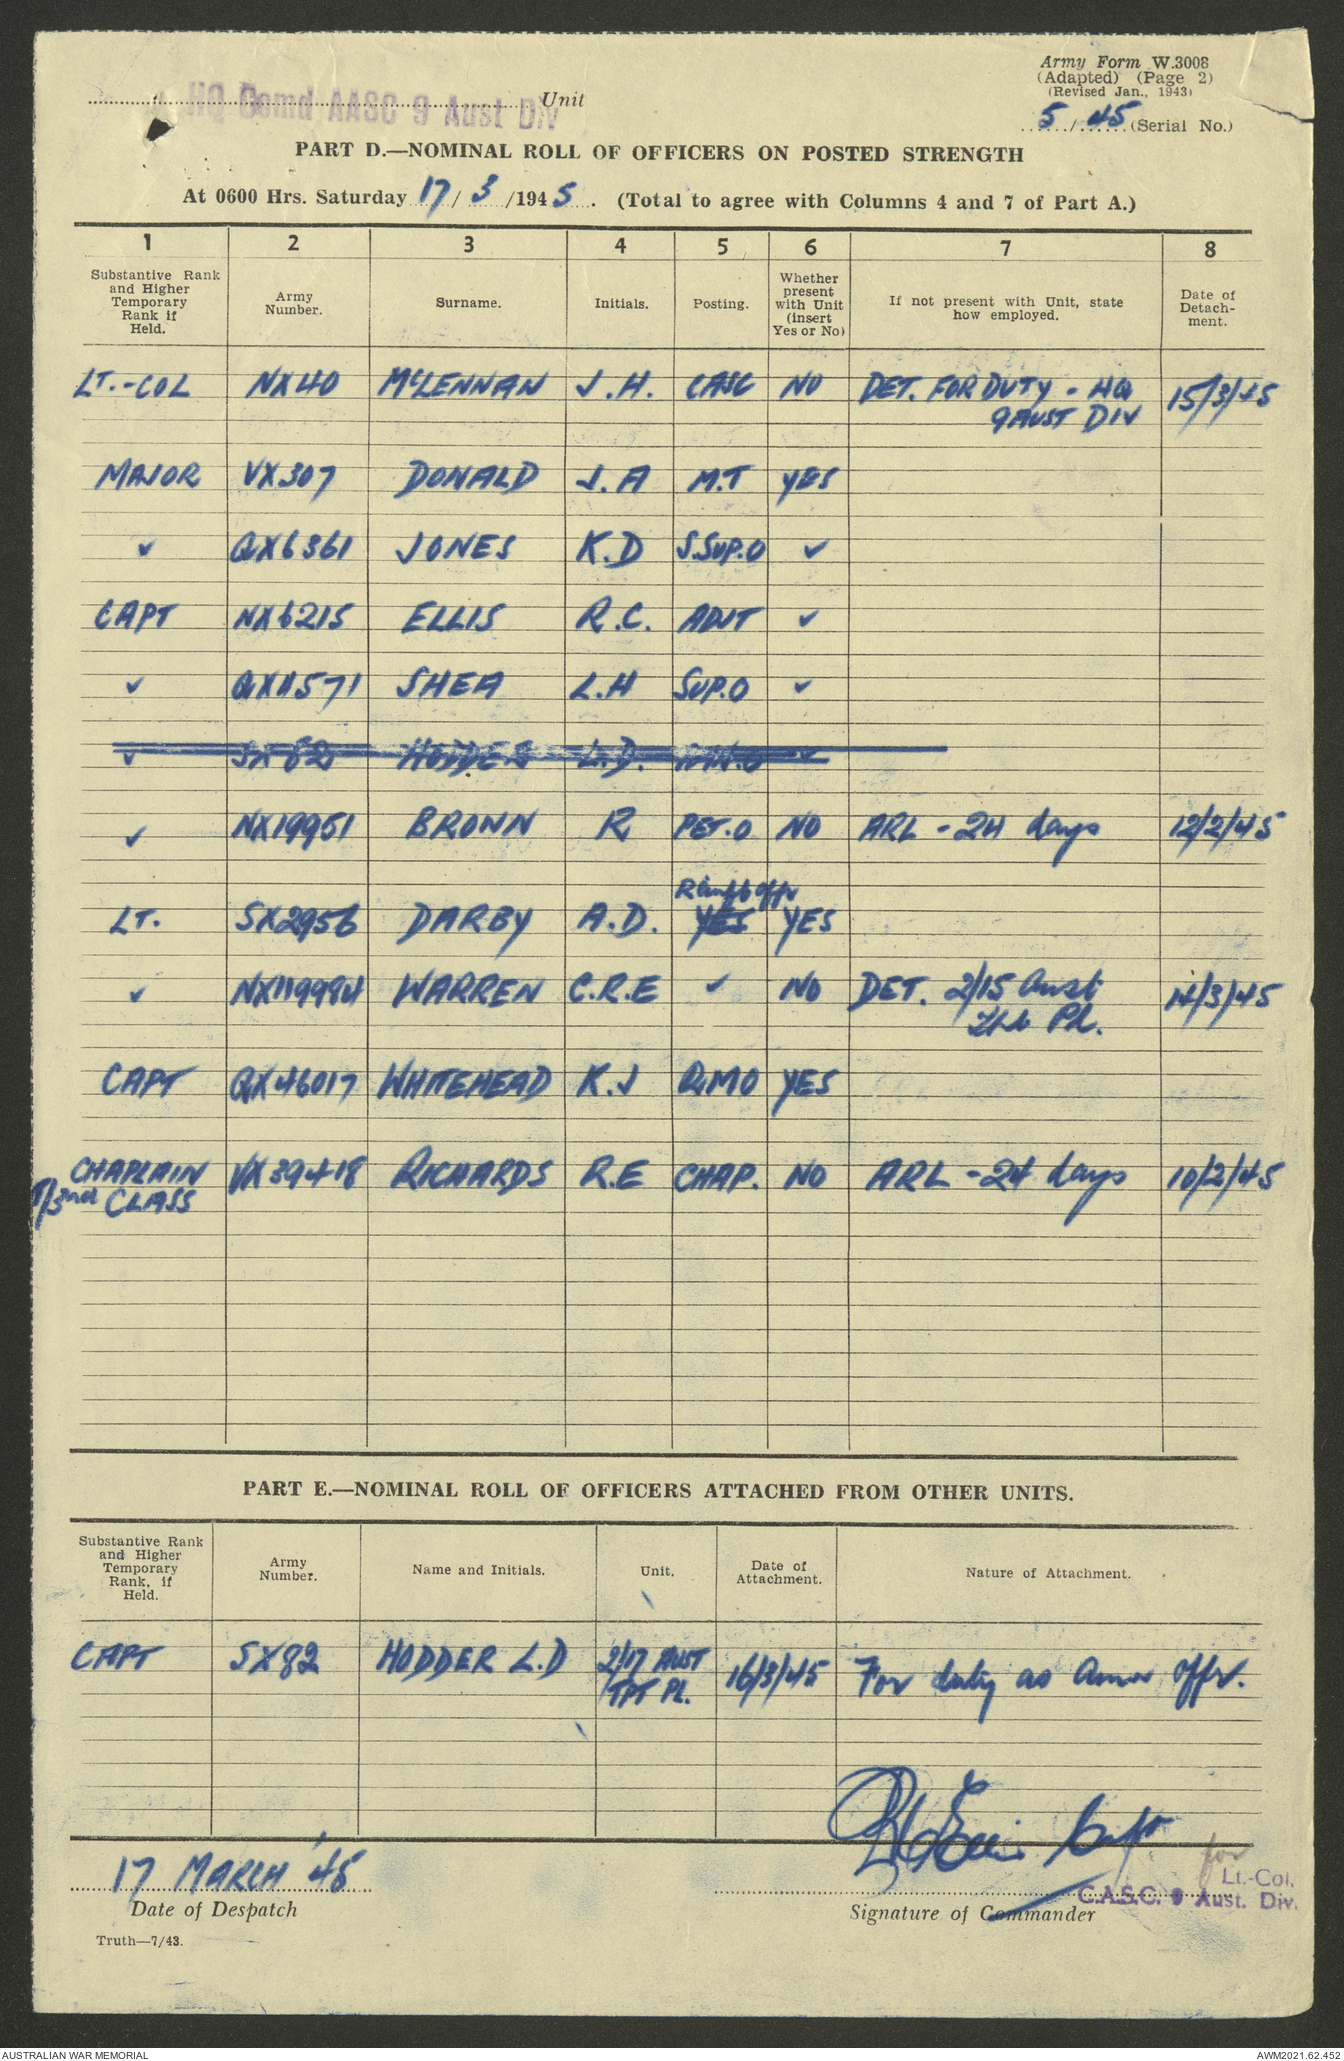 Army Form W.3008
(Adapted) (Page 2)
(Revised Jan., 1943)
HQ Comd AASC 9 Aust Div Unit
5/45 (Serial No.)
PART D.—NOMINAL ROLL OF OFFICERS ON POSTED STRENGTH
At 0600 Hrs. Saturday 17/3/1945. (Total to agree with Columns 4 and 7 of Part A.)
1 2 3 4 5 6 7 8
Substantive Rank and Higher Temporary Rank if Held. Army Number. Surname. Initials. Posting. Whether present with Unit (insert Yes or No) If not present with Unit, state how employed. Date of Detach-ment.
LT.-COL NX40 McLENNAN J.H. CASC NO DET. FOR DUTY - HQ 15/3/45
9 AUST DIV
MAJOR VX307 DONALD J.A M.T YES
✓ QX6361 JONES K.D S.SUP.O ✓
CAPT NX6215 ELLIS R.C. ADJT ✓
✓ QX11571 SHEA L.H SUP.O ✓
✓ SX82 HODDER L.D. ✓
✓ NX19951 BROWN R PET.O NO ARL - 24 days 12/2/45
Rinft offr
LT. SX2956 DARBY A.D. YES YES
✓ NX119984 WARREN C.R.E ✓ NO DET. 2/15 Aust 14/3/45
Pl.
CAPT QX46017 WHITEHEAD K.J RMO YES
CHAPLAIN VX39418 RICHARDS R.E CHAP. NO ARL - 24 days 10/2/45
T/3rd CLASS
PART E.—NOMINAL ROLL OF OFFICERS ATTACHED FROM OTHER UNITS.
Substantive Rank and Higher Temporary Rank, if Held. Army Number. Name and Initials. Unit. Date of Attachment. Nature of Attachment.
CAPT SX82 HODDER L.D 2/17 AUST 16/3/45 For duty as Amn offr.
TPT PL.
RCEllis Capt
for
17 MARCH '45
Lt.-Col.
C.A.S.C. 9 Aust. Div.
Date of Despatch
Signature of Commander
Truth—7/43.
AUSTRALIAN WAR MEMORIAL
AWM2021.62.452